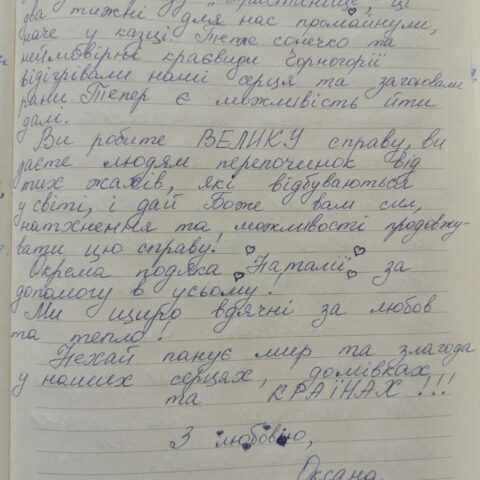 два тижні для нас промайнули,
наче у казці. Тепле сонечко та
неймовірні краєвиди Чорногорії
відігрівали наші серця та загоювали
рани. Тепер є можливість йти
далі.
Ви робите ВЕЛИКУ справу, ви
даєте людям перепочинок від
тих жахів, які відбуваються
у світі, і дай Боже вам сил,
натхнення та можливості продовжу-
вати цю справу!
Окрема подяка Наталії за
допомогу в усьому!
Ми щиро вдячні за любов
та тепло!
Нехай панує мир та злагода
у наших серцях, домівках
та КРАЇНАХ!!!
З любов'ю,
Оксана